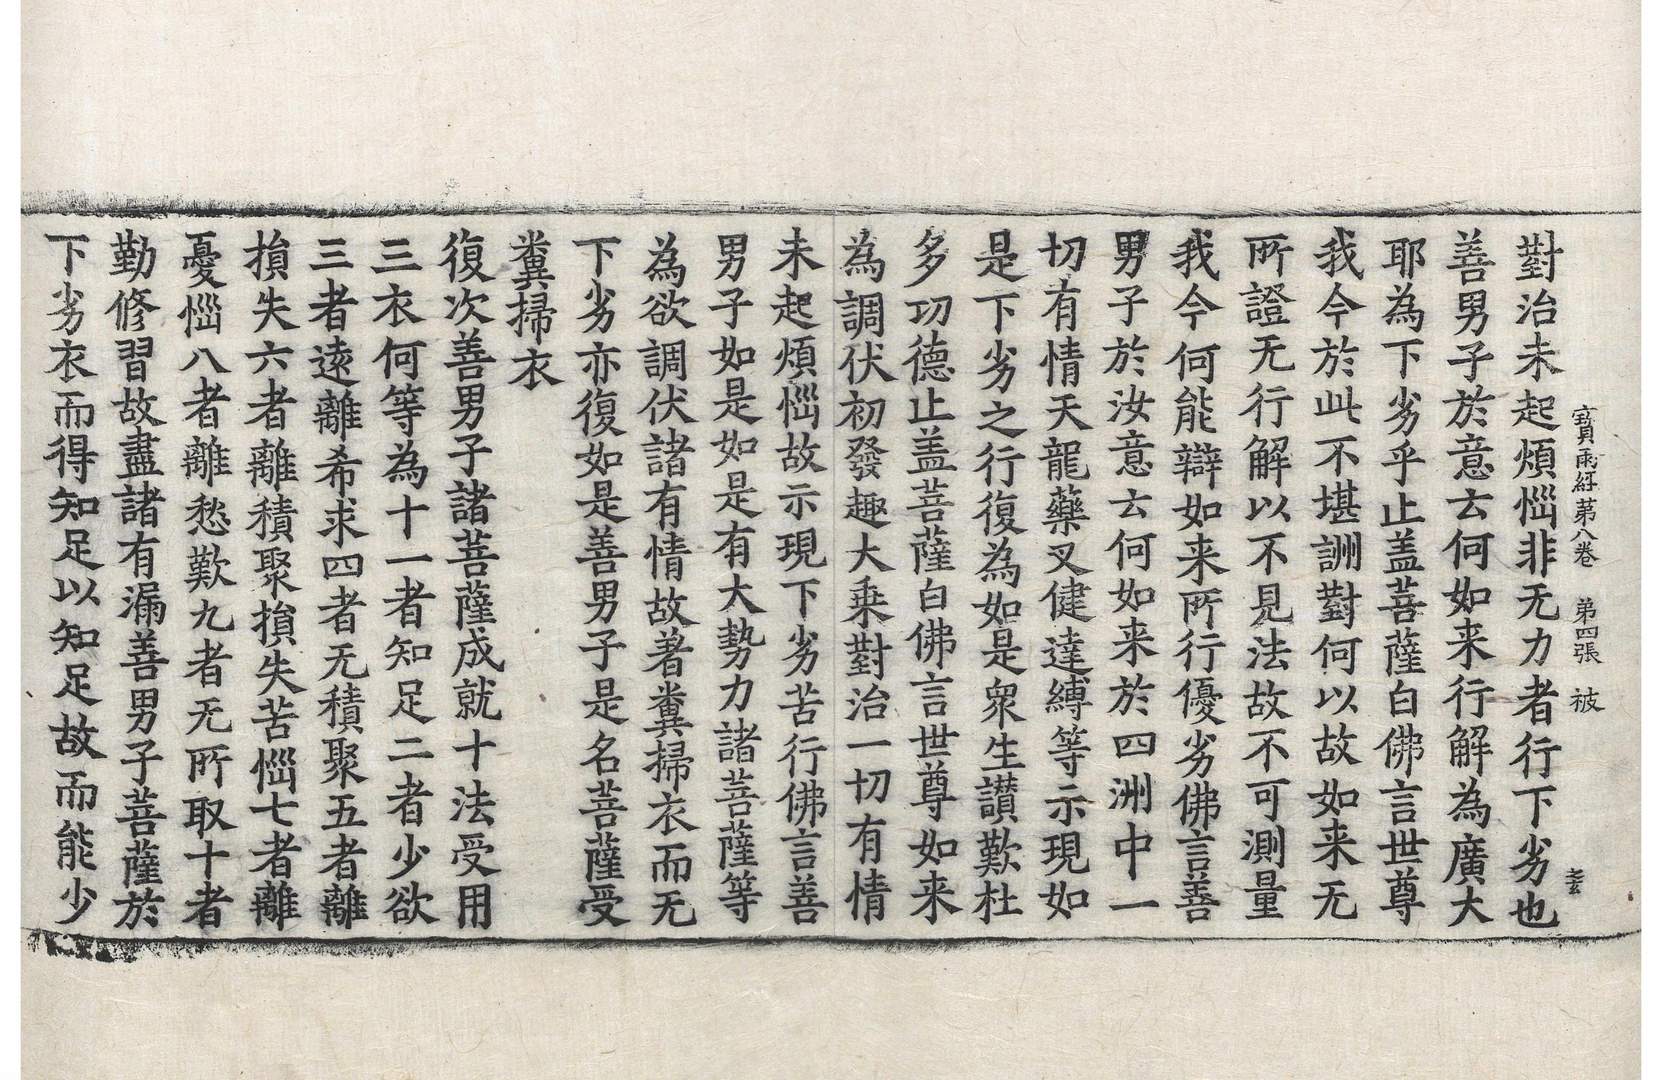 寶雨經第八卷　第四張　被
對治未起煩惱非无力者行下劣也
善男子於意云何如来行解為廣大
耶為下劣乎止盖菩薩白佛言世尊
我今於此不堪詶對何以故如来无
所證无行解以不見法故不可測量
我今何能辯如来所行優劣佛言善
男子於汝意云何如来於四洲中一
切有情天龍藥叉健達縛等示現如
是下劣之行復為如是衆生讃歎杜
多功德止盖菩薩白佛言世尊如来
為調伏初發趣大乗對治一切有情
未起煩惱故示現下劣苦行佛言善
男子如是如是有大勢力諸菩薩等
為欲調伏諸有情故著糞掃衣而无
下劣亦復如是善男子是名菩薩受
糞掃衣
復次善男子諸菩薩成就十法受用
三衣何等為十一者知足二者少欲
三者遠離希求四者无積聚五者離
損失六者離積聚損失苦惱七者離
憂惱八者離愁歎九者无所取十者
勤修習故盡諸有漏善男子菩薩於
下劣衣而得知足以知足故而能少